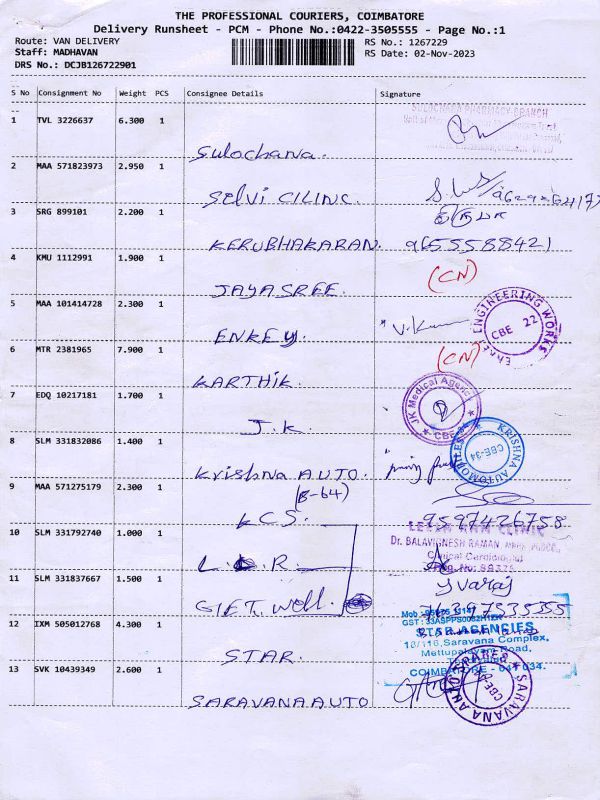 THE PROFESSIONAL COURIERS, COIMBATORE
Delivery Runsheet - PCM - Phone No.:0422-3505555 - Page No.:1
Route: VAN DELIVERY
RS No.: 1267229
Staff: MADHAVAN
RS Date: 02-Nov-2023
DRS No.: DCJB126722901
S No Consignment No Weight PCS Consignee Details Signature
1 TVL 3226637 6.300 1
SULOCHANA PHARMACY-BRANCH
Sulochana.
2 MAA 571823973 2.950 1
Selvi CILINC.
3 SRG 899101 2.200 1
KERUBHAKARAN. 9655588421
4 KMU 1112991 1.900 1
(CN)
JAYASREE.
5 MAA 101414728 2.300 1
ENGINEERING WORKS
CBE 22
ENKEY
6 MTR 2381965 7.900 1
(CN)
KARTHIK.
7 EDQ 10217181 1.700 1
JK Medical Agency
CBE
J.K.
8 SLM 331832086 1.400 1
KRISHNA AUTOMOBILES
CBE-34
Krishna AUTO.
9 MAA 571275179 2.300 1
(B-64)
KCS. 9597426758
10 SLM 331792740 1.000 1
CLINIC
Dr. BALAVIGNESH RAMAN
Clinical Cardiologist
Reg. No: 98375
L R.
11 SLM 331837667 1.500 1
yvaraj
GIFT Well.
12 IXM 505012768 4.300 1
STAR AGENCIES
10/116, Saravana Complex,
Mettupalayam Road,
COIMBATORE - 641 034.
STAR.
13 SVK 10439349 2.600 1
SARAVANA AUTO SPARES
CBE
SARAVANA AUTO